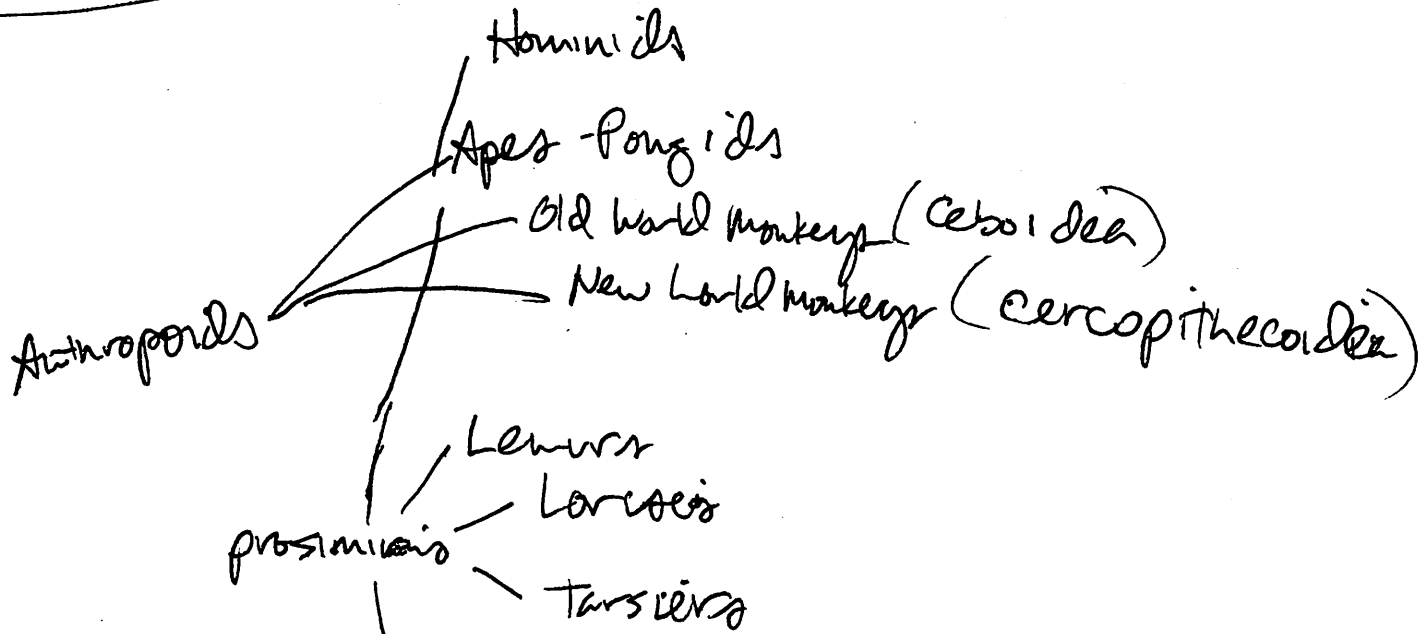 Hominids
Apes - Pongids
Old World Monkeys (Ceboidea)
New World Monkeys (cercopithecoidea)
Anthropoids
Lemurs
Lorises
prosimians
Tarsiers